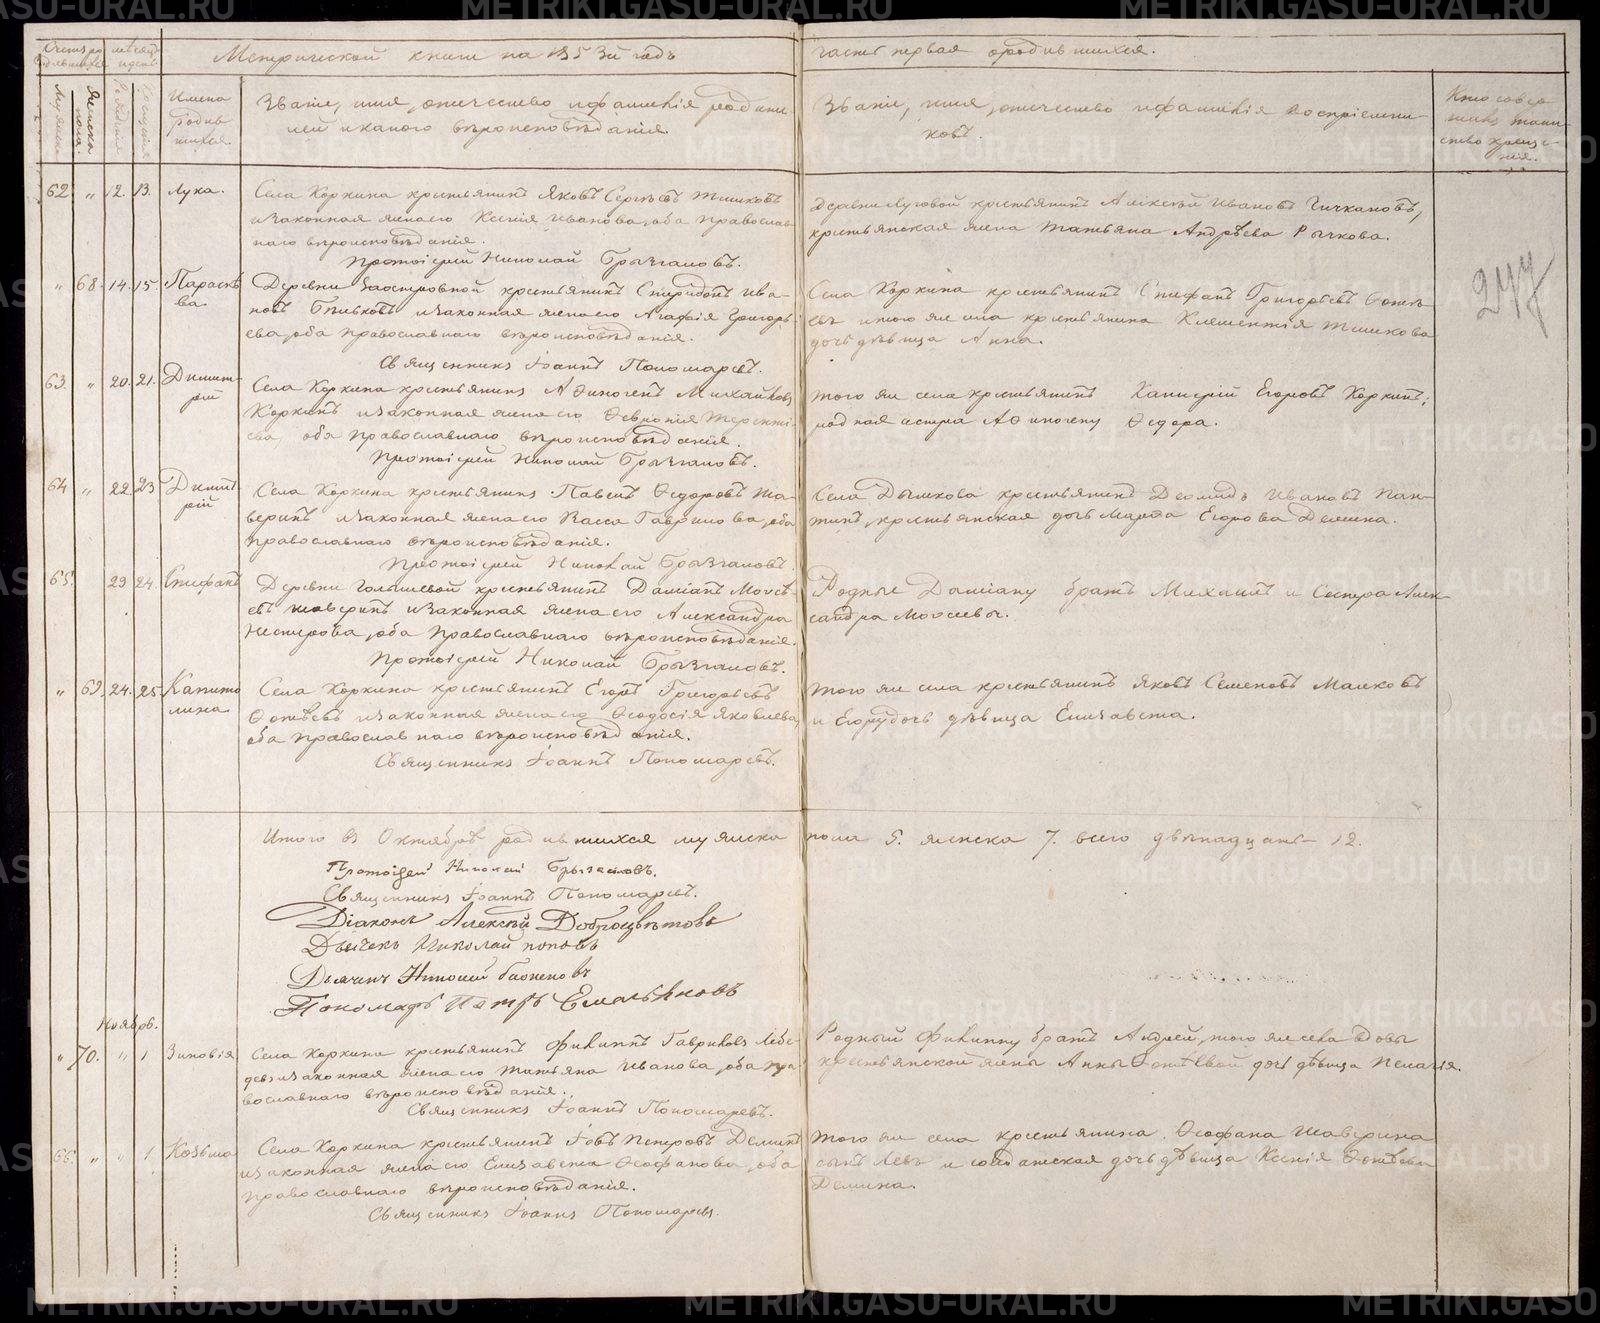 Метрической книги на 1853й годъ
часть первая о родившихся.
Имена родив- шихся.
Званіе, имя, отчество и фамилія родите-
лей и какого вѣроисповѣданія.
Званіе, имя, отчество и фамилія воспріемни-
ковъ.
Кто совер-
шилъ таин-
ство креще-
нія.
62 " 12. 13. Лука.
Села Коркина крестьянинъ Яковъ Сергѣевъ Тишковъ
и законная жена его Ксенія Иванова, оба православ-
наго вѣроисповѣданія.
Протоіерей Николай Брызгаловъ.
Деревни Луговой крестьянинъ Алексѣй Ивановъ Чичкановъ,
крестьянская жена Татьяна Андрѣева Рычкова.
277
" 68. 14. 15. Параскѣ-
ва.
Деревни Заостровной крестьянинъ Спиридонъ Ива-
новъ Бѣльковъ и законная жена его Агафія Григорь-
ева, оба православнаго вѣроисповѣданія.
Священникъ Іоаннъ Пономаревъ.
Села Коркина крестьянинъ Стефанъ Григорьевъ Фотѣ-
евъ и того же села крестьянина Клементія Тишкова
дочь дѣвица Анна.
63. " 20. 21. Димит-
рій
Села Коркина крестьянинъ Аѳиногенъ Михайловъ
Коркинъ и законная жена его Ѳевронія Терентi-
ева, оба православнаго вѣроисповѣданія.
Протоіерей Николай Брызгаловъ.
того же села крестьянинъ Егоровъ Коркинъ;
родная сестра Аѳиногену Ѳедора.
64 " 22. 23 Димит-
рій
Села Коркина крестьянинъ Павелъ Ѳедоровъ Ша-
веринъ и законная жена его Васса Гаврилова, оба
православнаго вѣроисповѣданія.
Протоіерей Николай Брызгаловъ.
Села Дымкова крестьянинъ Деомидъ Ивановъ Пан-
тинъ, крестьянская дочь Марѳа Егорова Демина.
65. 23 24. Стефанъ
Деревни Голышевой крестьянинъ Даміанъ Моисѣ-
евъ Шаверинъ и законная жена его Александра
Нестерова, оба православнаго вѣроисповѣданія.
Протоіерей Николай Брызгаловъ.
Родные Даміану братъ Михаилъ и Сестра Алек-
сандра Моисеевы.
" 69. 24. 25. Капито
лина
Села Коркина крестьянинъ Егоръ Григорьевъ
Фотѣевъ и законная жена его Ѳеодосія Яковлева,
оба православнаго вѣроисповѣданія.
Священникъ Іоаннъ Пономаревъ.
того же села крестьянинъ Яковъ Семеновъ Малковъ
и Егору дочь дѣвица Елизавета.
Итого въ Октябрѣ родившихся мужеска пола 5. женска 7. всего двѣнадцать 12.
Протоіерей Николай Брызгаловъ.
Священникъ Іоаннъ Пономаревъ.
Діаконъ Алексѣй Доброцвѣтовъ
Дьячекъ Николай Поповъ
Дьячекъ Николай
Пономарь Петръ Емельяновъ
Ноябрь.
" 70. " 1 Зиновія
Села Коркина крестьянинъ Филиппъ Гавриловъ Лебе-
девъ и законная жена его Татьяна Иванова, оба пра-
вославнаго вѣроисповѣданія.
Священникъ Іоаннъ Пономаревъ.
Родный Филиппу братъ Андрей, того же села вдовы
крестьянской жены Анны Фотѣевой дочь дѣвица Пелагія.
66. " " 1. Козьма
Села Коркина крестьянинъ Іовъ Петровъ Деминъ
и законная жена его Елизавета Ѳеофанова, оба
православнаго вѣроисповѣданія.
Священникъ Іоаннъ Пономаревъ.
того же села крестьянина Ѳеофана Шаверина
сынъ Левъ и солдатская дочь дѣвица Ксенія Фотѣева
Демина.
METRIKI.GASU-URAL.RU